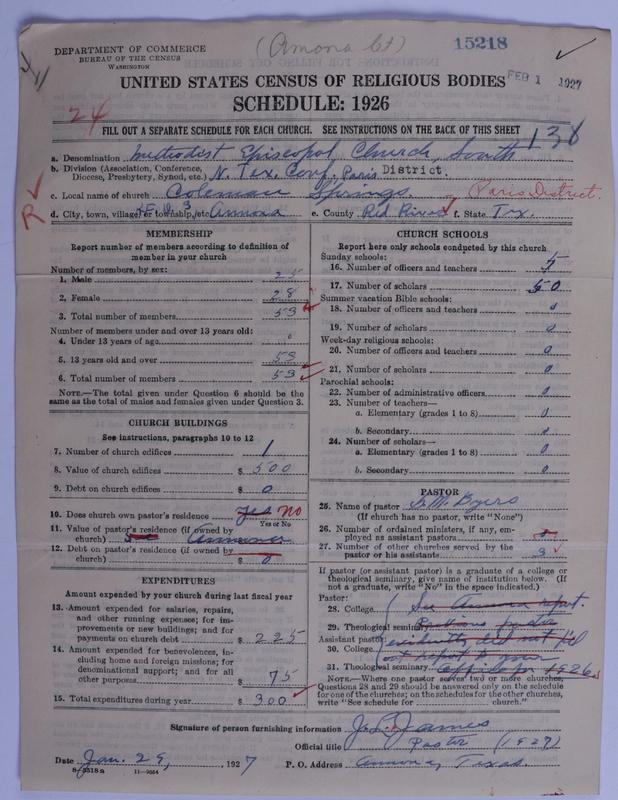 (Annona Ct)
15218
DEPARTMENT OF COMMERCE
BUREAU OF THE CENSUS
WASHINGTON
UNITED STATES CENSUS OF RELIGIOUS BODIES
FEB 1 1927
SCHEDULE: 1926
24
FILL OUT A SEPARATE SCHEDULE FOR EACH CHURCH. SEE INSTRUCTIONS ON THE BACK OF THIS SHEET
138
a. Denomination Methodist Episcopal Church, South
b. Division (Association, Conference, Diocese, Presbytery, Synod, etc.) N. Tex. Conf. Paris District.
c. Local name of church Coleman Springs. Paris District.
R
d. City, town, village, or township, etc. R.F.D. 3 Annona e. County Red River f. State Tex.
MEMBERSHIP
Report number of members according to definition of
member in your church
Number of members, by sex:
1. Male 25
2. Female 28
3. Total number of members 53
Number of members under and over 13 years old:
4. Under 13 years of age 0
5. 13 years old and over 53
6. Total number of members 53
NOTE.—The total given under Question 6 should be
same as the total of males and females given under Question 3.
CHURCH BUILDINGS
See instructions, paragraphs 10 to 12
7. Number of church edifices 1
8. Value of church edifices $ 500
9. Debt on church edifices $ 0
10. Does church own pastor's residence yes no
Yes or No
11. Value of pastor's residence (if owned by
church) See Annona
12. Debt on pastor's residence (if owned by
church) $ 0
EXPENDITURES
Amount expended by your church during last fiscal year
13. Amount expended for salaries, repairs,
and other running expenses; for im-
provements or new buildings; and for
payments on church debt $ 225
14. Amount expended for benevolences, in-
cluding home and foreign missions; for
denominational support; and for all
other purposes $ 75
15. Total expenditures during year $ 300
CHURCH SCHOOLS
Report here only schools conducted by this church
Sunday schools:
16. Number of officers and teachers 5
17. Number of scholars 50
Summer vacation Bible schools:
18. Number of officers and teachers 0
19. Number of scholars 0
Week-day religious schools:
20. Number of officers and teachers 0
21. Number of scholars 0
Parochial schools:
22. Number of administrative officers 0
23. Number of teachers—
a. Elementary (grades 1 to 8) 0
b. Secondary 0
24. Number of scholars—
a. Elementary (grades 1 to 8) 0
b. Secondary 0
PASTOR
25. Name of pastor Byers
(If church has no pastor, write "None")
26. Number of ordained ministers, if any, em-
ployed as assistant pastors 0
27. Number of other churches served by the
pastor or his assistants 3
If pastor (or assistant pastor) is a graduate of a college or
theological seminary, give name of institution below. (If
not a graduate, write "No" in the space indicated.)
Pastor:
28. College See Annona report.
29. Theological seminary Previous pastor
Assistant pastor: evidently did not
30. College report to your
31. Theological seminary office for 1926.
NOTE.—Where one pastor serves two or more churches,
Questions 28 and 29 should be answered only on the schedule
for one of the churches; on the schedules for the other churches,
write "See schedule for church."
Signature of person furnishing information J. L. James
Official title Pastor (1927)
Date Jan. 29, 1927 P. O. Address Annona, Texas.
8-5318a 11-9054